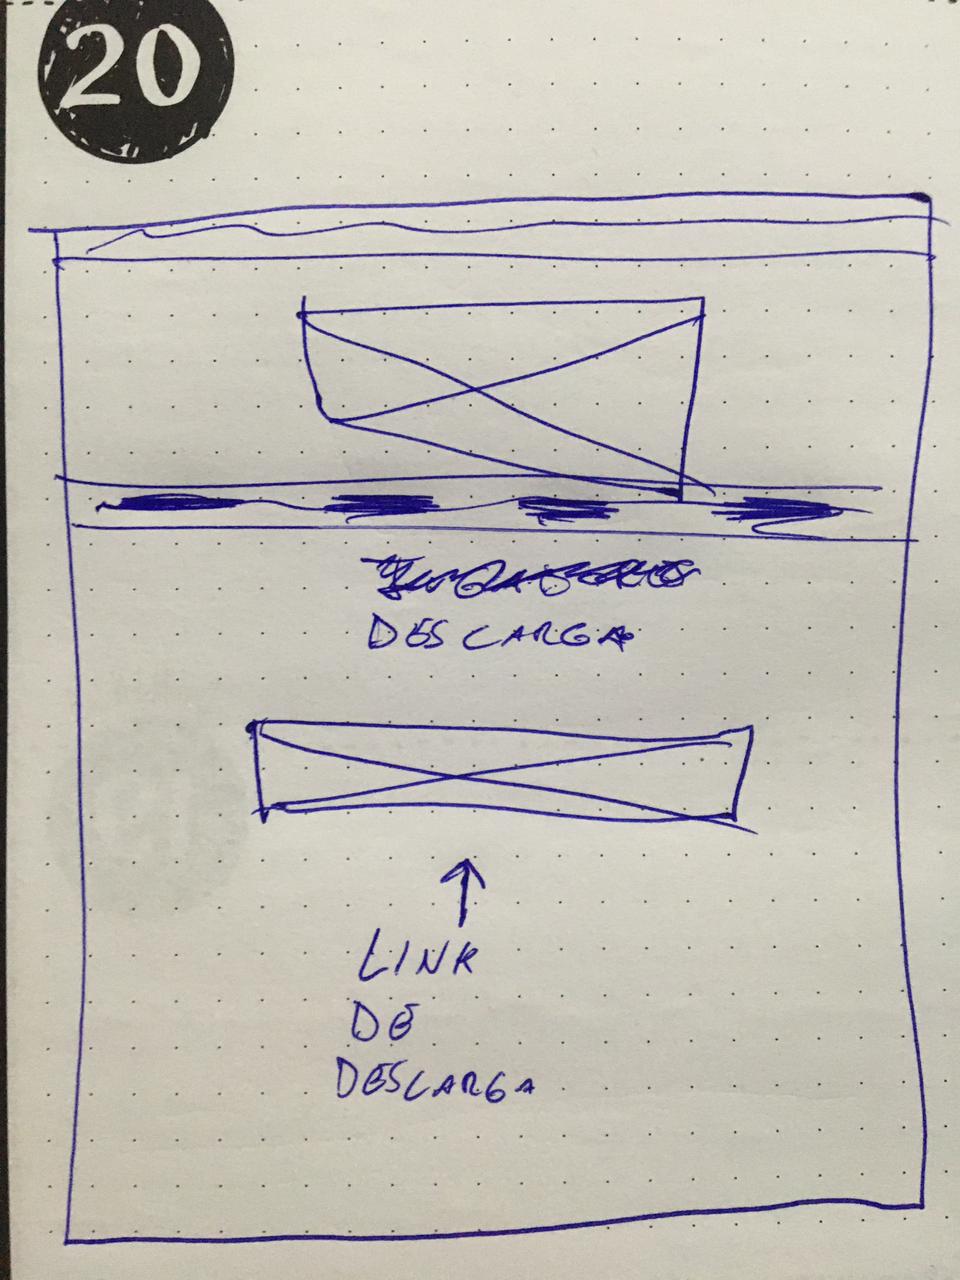 20
DESCARGA
LINK
DE
DESCARGA